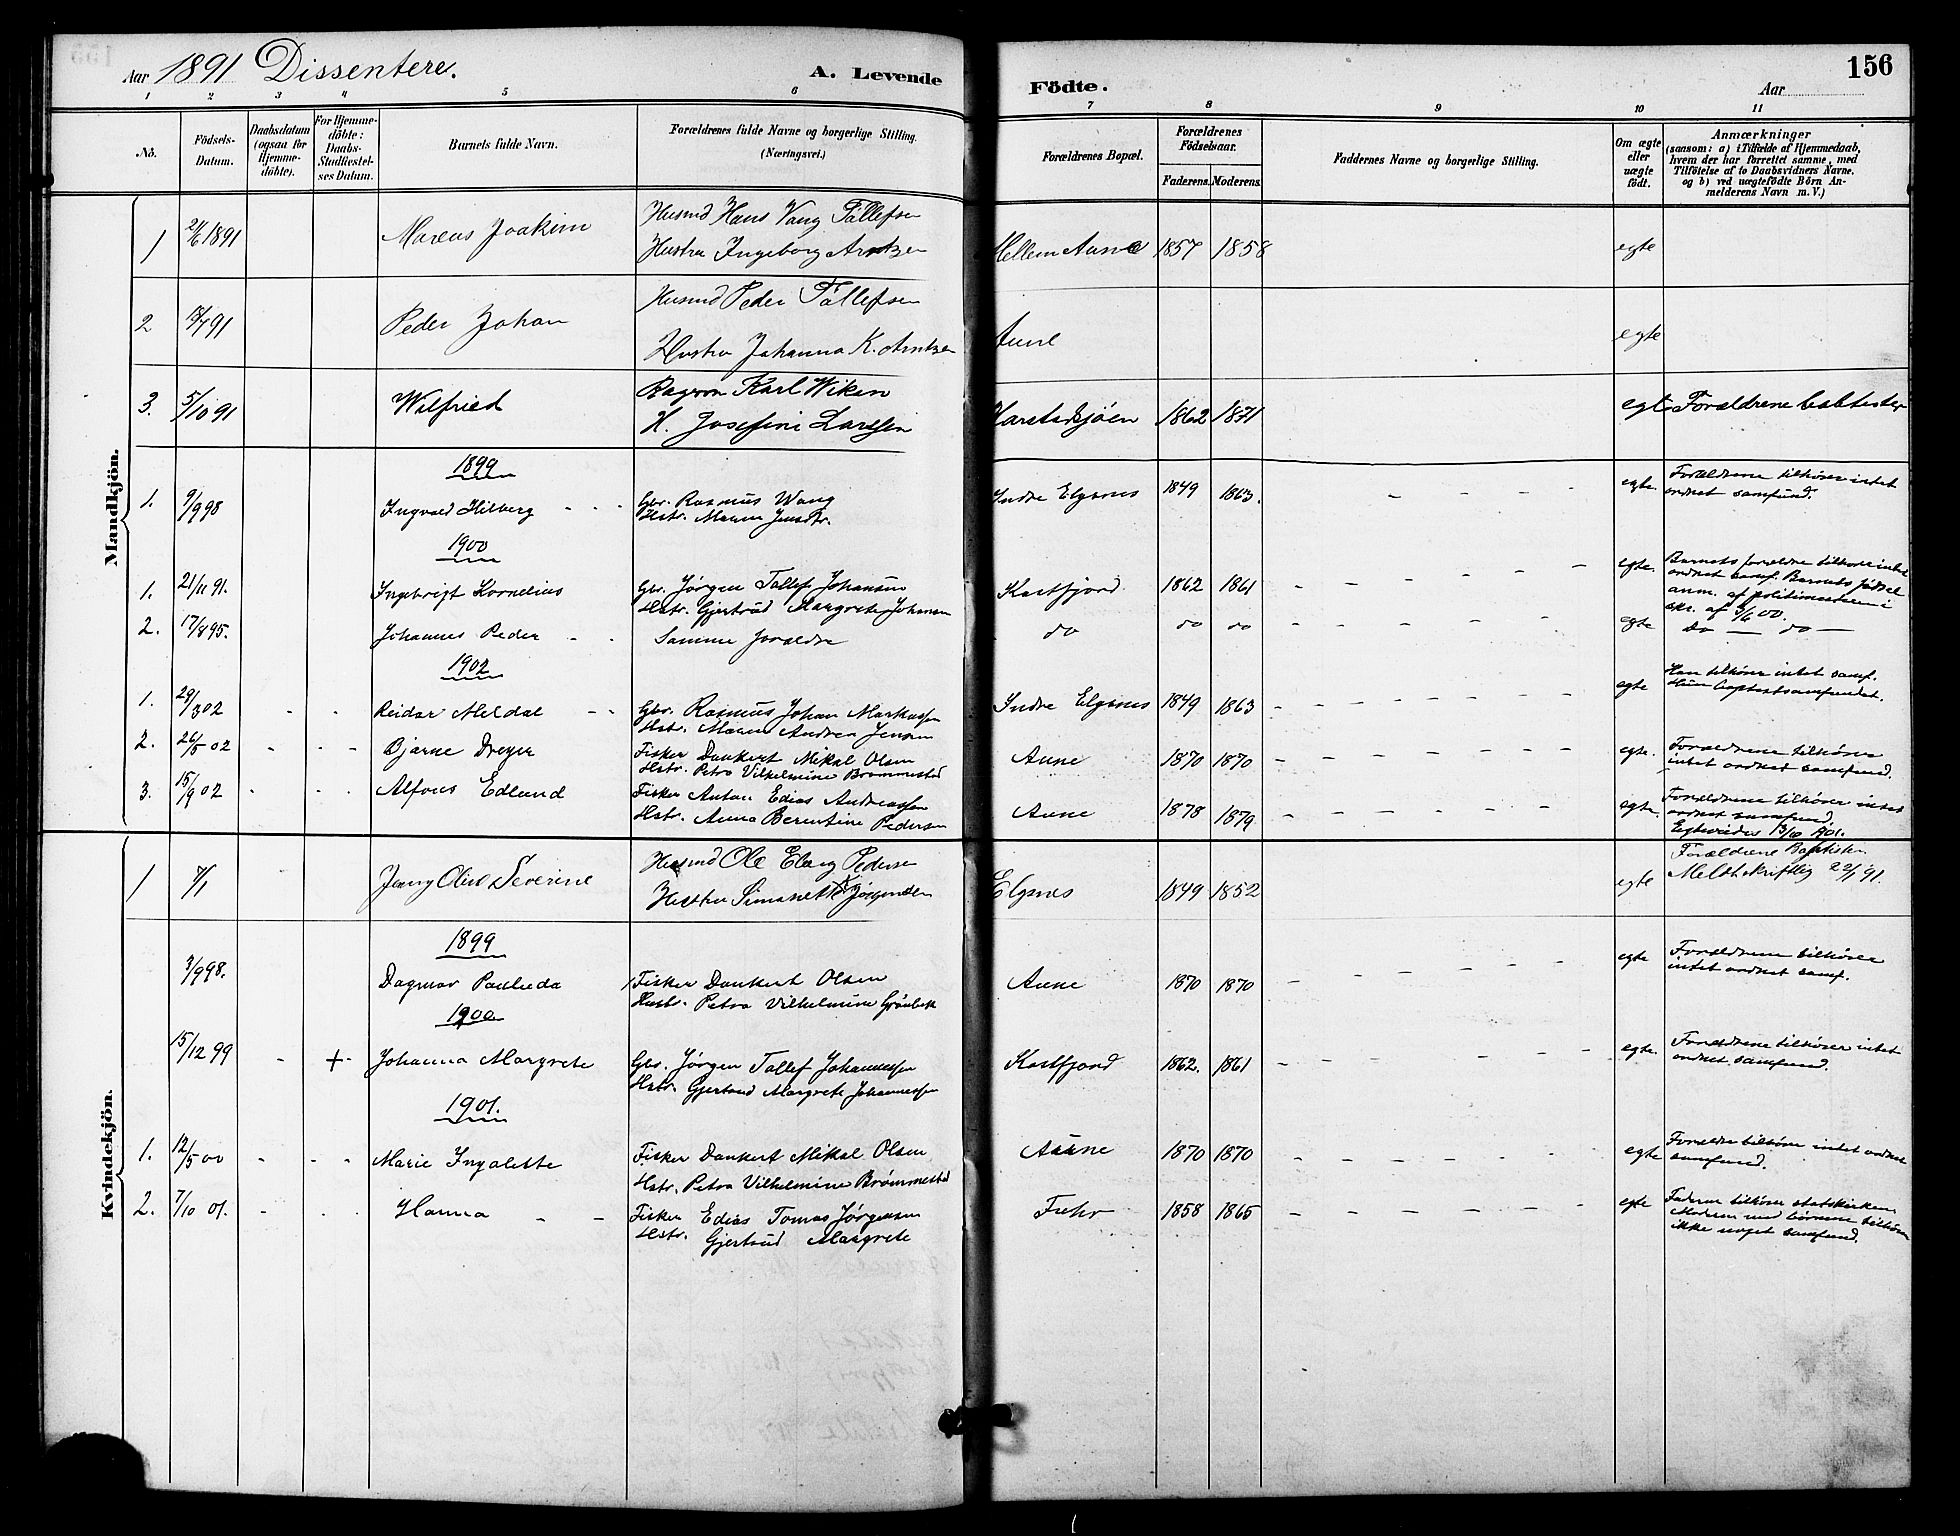 Aar 1891 Dissentere. A. Levende Födte. Aar 156
1 2 3 4 5 6 7 8 9 10 11
No. Födsels-Datum. Daabsdatum (ogsaa for Hjemmedöbte). For Hjemmedöbte: Daabs-Stadfæstelses Datum. Barnets fulde Navn. Forældrenes fulde Navne og borgerlige Stilling. (Næringsvei.) Forældrenes Bopæl. Forældrenes Födselsaar. Faderens. Moderens. Faddernes Navne og borgerlige Stilling. Om ægte eller uægte födt. Anmærkninger (saasom: a) i Tilfælde af Hjemmedaab, hvem der har forrettet samme, med Tilföielse af to Daabsvidners Navne, og b) ved uægtefödte Börn Anmelderens Navn m. V.)
Mandkjön.
1 2/6 1891 Marcus Joakim Husmd Hans Vang Tollefsen Hellem Aune 1857 1858 egte
Hustru Ingeborg Arntzen
2 91 Peder Johan Husmd Peder Tollefsen Aune egte
Hustru Johanna K. Arntzen
3. 5/10 91 Wilfried Karl Wiken Harstadsjöen 1862 1871 egte Forældrene babtister
H. Josefine Larssen
1899
1. 9/9 98 Ingvald Hilberg - - - Gbr. Rasmus Wang Indre Elgsnes 1849 1863. - - - - egte. Forældrene tilhører intet
Hstr. Maren Jensdtr. ordnet samfund.
1900
1. 21/11 91. Ingebrigt Kornelius Gbr. Jörgen Tollef Johansen Kastfjord 1862 1861 - - - - - - egte. Barnets forældre tilhører intet
Hstr. Gjertrud Margrete Johansen ordnet samf. Barnets fødsel
anm. af politimesteren i
skr. af 5/6 00.
2. 17/8 95. Johannes Peder - - Samme foreldre do do do - - - - - - egte do — do —
1902
1. 29/3 02 - - Reidar Meldal - - Gbr. Rasmus Johan Markussen Indre Elgsnes 1849 1863 - - - - - - - egte Han tilhører intet samf.
Hstr. Maren Andrea Jensen Hun baptistsamfundet.
2. 26/5 02 - - - Bjarne Dreyer Fisker Dankert Mikal Olsen Aune 1870 1870 - - - - - - egte. Forældrene tilhører
Hstr. Petra Vilhelmine Brømmestad intet ordnet samfund.
3. 15/9 02 - - - Alfons Edlund Fisker Anton Edias Andreassen Aune 1878 1879 - - - - - - egte. Forældrene tilhører intet
Hstr. Anna Berentine Pedersen ordnet samfund.
Egteviedes 13/10 1901.
Kvindekjön.
1 7/1 Jenny Olive Severine Husmd Ole Elang Pedersen Elgsnes 1849 1852 egte Forældrene Baptister
Hustru Simanette Jörgensen Meldt skriftlig 22/1 91.
1899
3/9 98. Dagmar Pauleda Fisker Dankert Olsen Aune 1870 1870 - - - - - - egte Forældrene tilhører
Hustr. Petra Vilhelmine Grönbek intet ordnet samf.
1900
15/12 99 - + - Johanna Margrete Gbr. Jørgen Tollef Johannessen Kastfjord 1862. 1861 - - - - - - egte. Forældrene tilhører intet
Hstr. Gjertrud Margrete Johannessen ordnet samfund.
1901.
1. 12/5 00 - - - Marie Ingolette Fisker Dankert Mikal Olsen Aaune 1870 1870 - - - - - - egte Forældre tilhører intet ordnet
Hstr. Petra Vilhelmine Brømmestad samfund.
2. 7/10 01. - - Hanna - - Fisker Edias Tomas Jørgensen Fuhr 1858 1865 - - - - - - egte Faderen tilhører statskirken
Hstr. Gjertrud Margrete Moderen med börnene tilhører
ikke noget samfund.